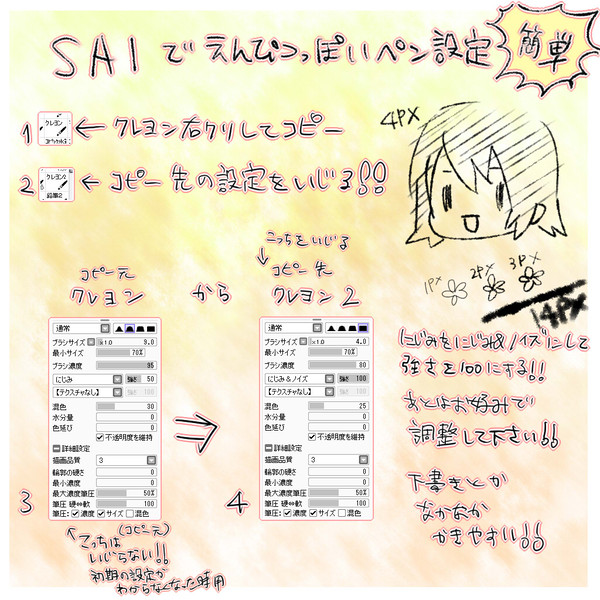 SAIでえんぴつっぽいペン設定
簡単
1
クレヨン
← クレヨン右クリしてコピー
2
クレヨン2
鉛筆2
← コピー先の設定をいじる!!
4PX
1PX
2PX
3PX
14PX
こっちをいじる
↓
コピー元
クレヨン
から
コピー先
クレヨン2
通常
ブラシサイズ x1.0 9.0
最小サイズ 70%
ブラシ濃度 95
にじみ 強さ 50
【テクスチャなし】 強さ 100
混色 30
水分量 0
色延び 0
不透明度を維持
詳細設定
描画品質 3
輪郭の硬さ 0
最小濃度 0
最大濃度筆圧 50%
筆圧 硬⇔軟 100
筆圧: 濃度 サイズ 混色
3
⇒
通常
ブラシサイズ x1.0 4.0
最小サイズ 70%
ブラシ濃度 80
にじみ&ノイズ 強さ 100
【テクスチャなし】 強さ 100
混色 25
水分量 0
色延び 0
不透明度を維持
詳細設定
描画品質 3
輪郭の硬さ 0
最小濃度 0
最大濃度筆圧 50%
筆圧 硬⇔軟 100
筆圧: 濃度 サイズ 混色
4
(コピー元)
こっちは
いじらない!!
初期の設定が
わからなくなった時用
にじみをにじみ&ノイズにして
強さを100にする!!
あとはお好みで
調整して下さい!!
下書きとか
なかなか
かきやすい!!